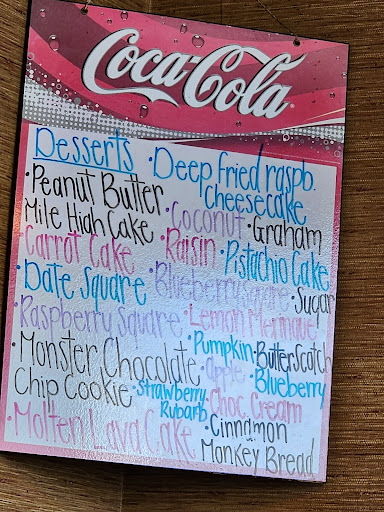 Coca-Cola
Desserts
• Peanut Butter
Mile High Cake
• Carrot Cake
• Date Square
• Raspberry Square
• Monster Chocolate
Chip Cookie
• Molten Lava Cake
• Deep fried raspb.
cheesecake
• Coconut • Graham
• Raisin • Pistachio Cake
• Blueberry square • Sugar
• Lemon Meringue
• Pumpkin • Butterscotch
• apple • Blueberry
• Strawberry
Rubarb • Choc. Cream
• Cinnamon
Monkey Bread